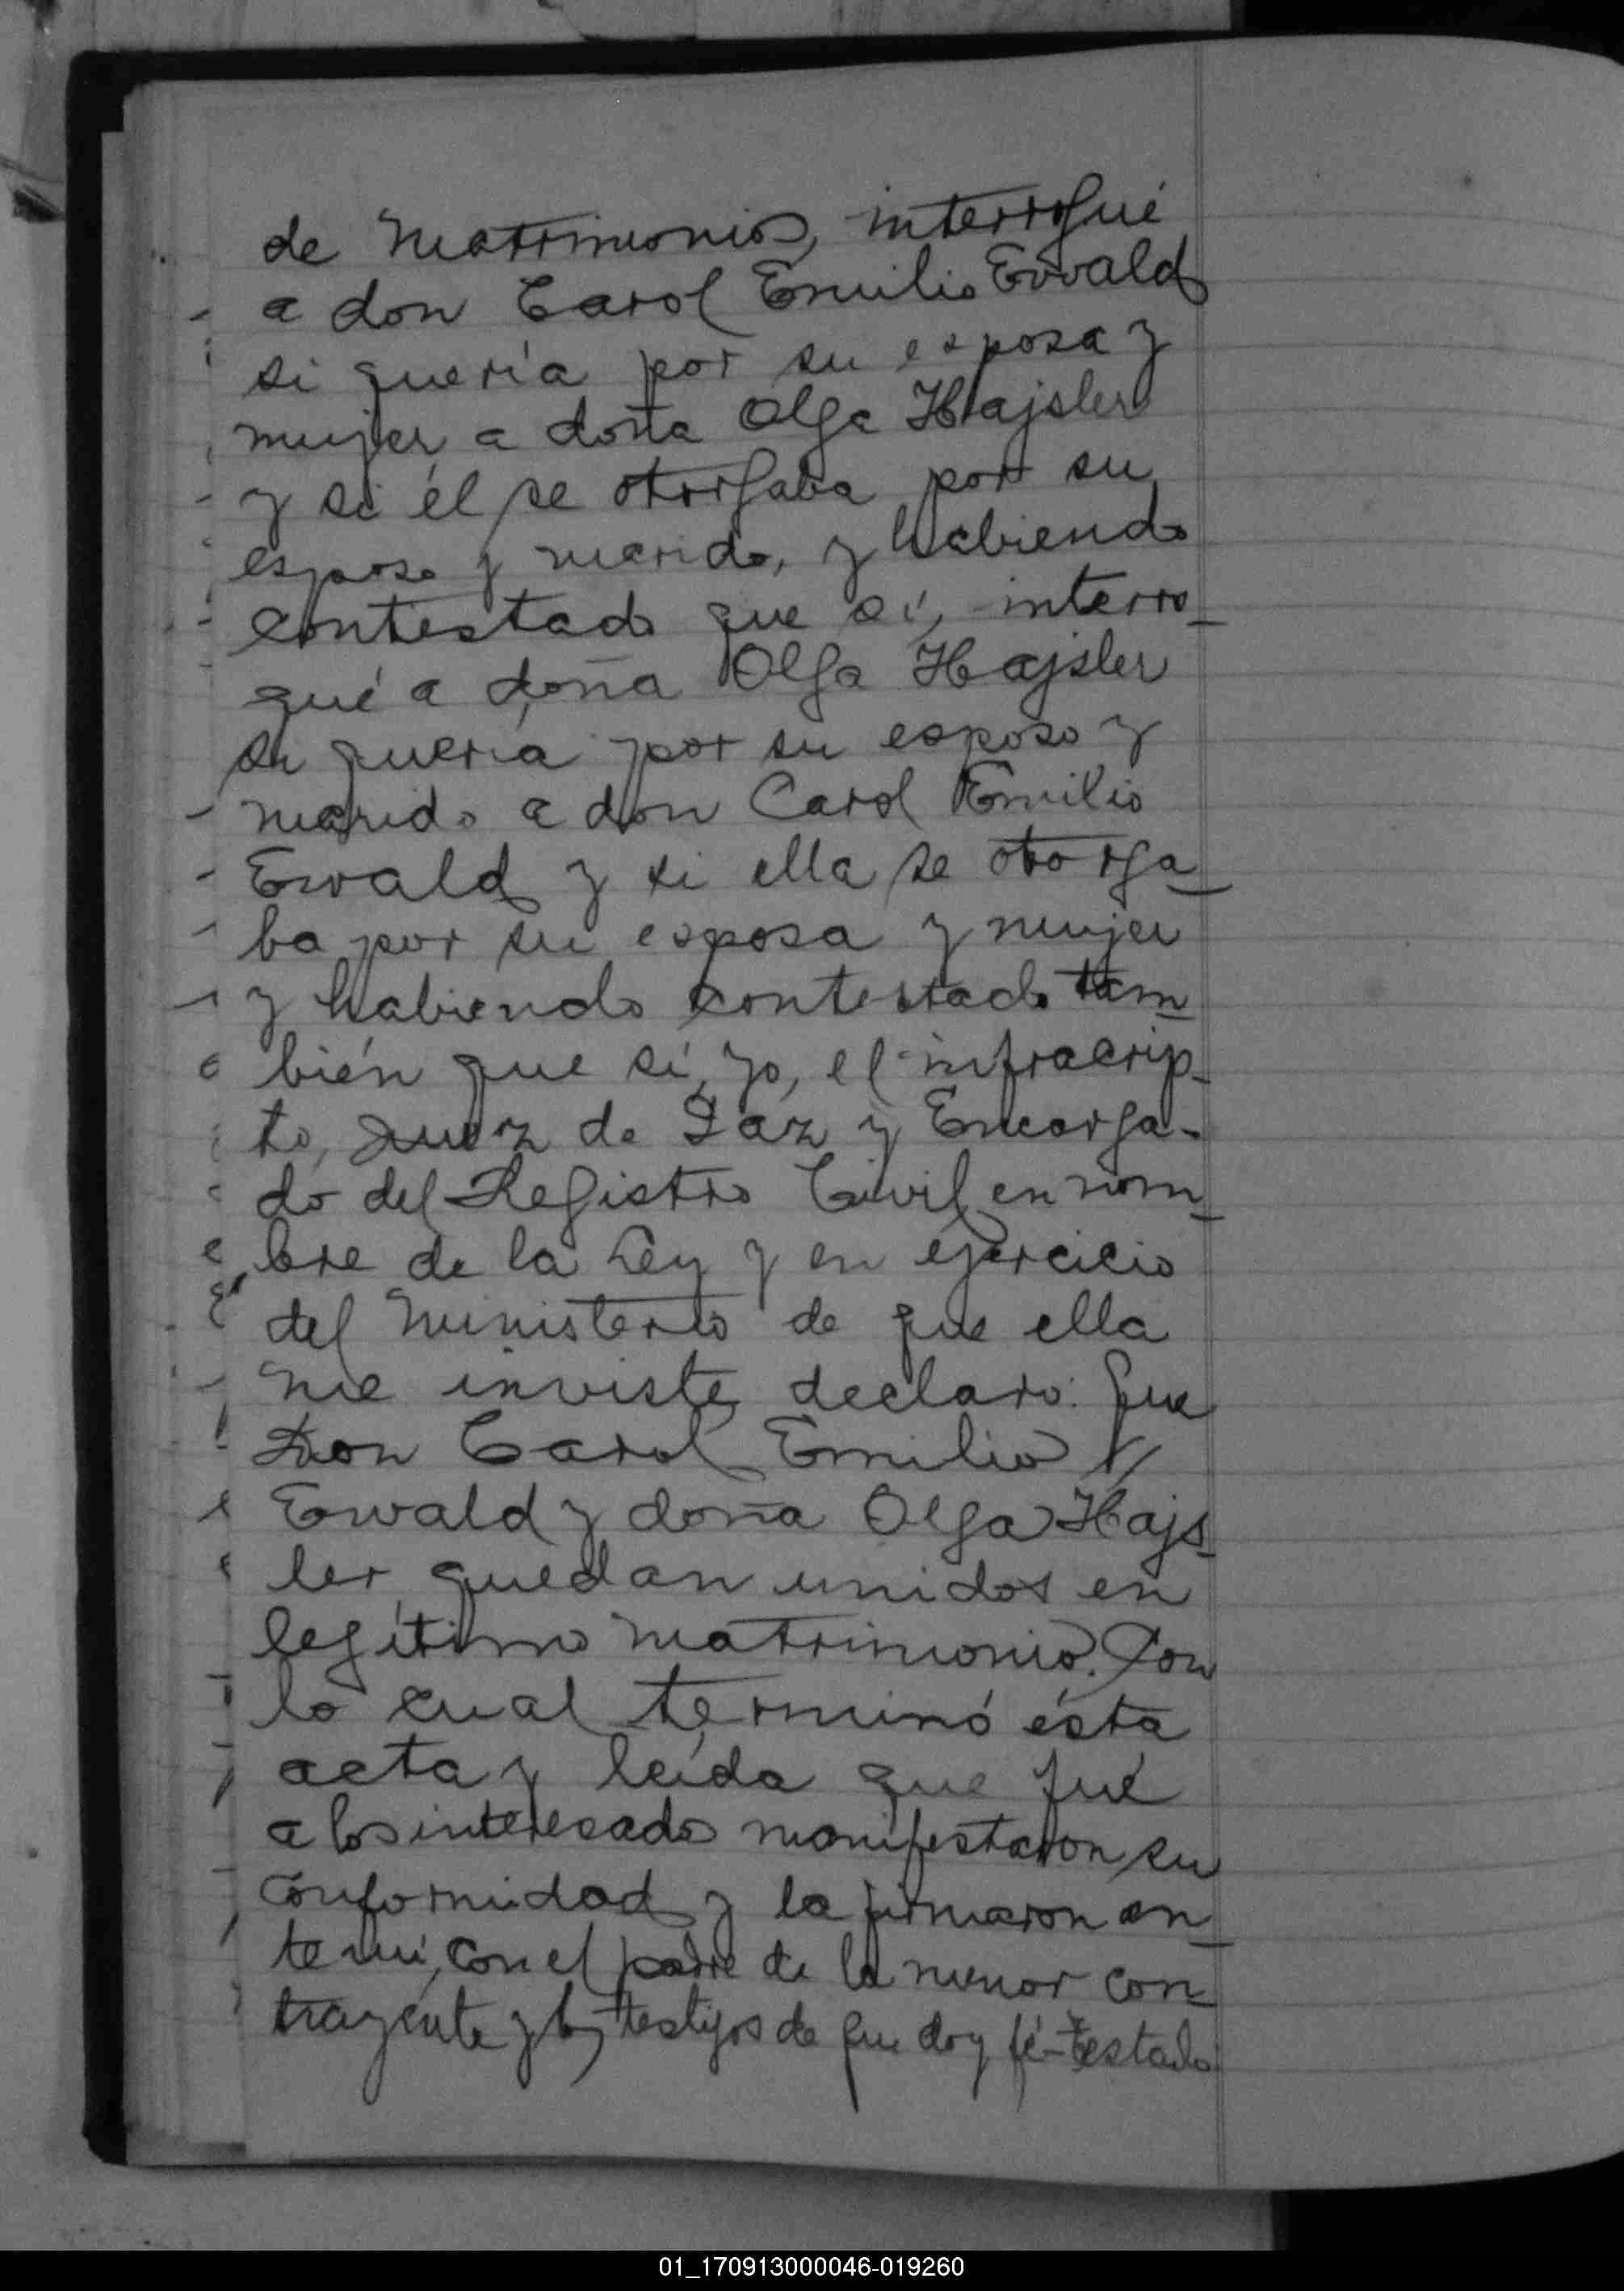 de Matrimonio, interrogué
a don Carol Emilio Ewald
si quería por su esposa y
mujer a doña Olga Hajsler
y si él se otorgaba por su
esposo y marido, y habiendo
contestado que sí, interro_
gué a doña Olga Hajsler
si quería por su esposo y
marido a don Carol Emilio
Ewald y si ella se otorga_
ba por su esposa y mujer
y habiendo contestado tam_
bién que sí, yo, el infracrip_
to, Juez de Paz y Encarga-
do del Registro Civil, en nom_
bre de la Ley y en ejercicio
del Ministerio de que ella
me inviste, declaro: que
Don Carol Emilio //
Ewald y doña Olga Hajs_
ler, quedan unidos en
legítimo matrimonio. Con
lo cual terminó ésta
acta y leída que fué
a los interesados manifestaron su
conformidad y la firmaron an_
te mí, con el padre de la menor con_
trayente y los testigos de que doy fé-Testado
01_170913000046-019260